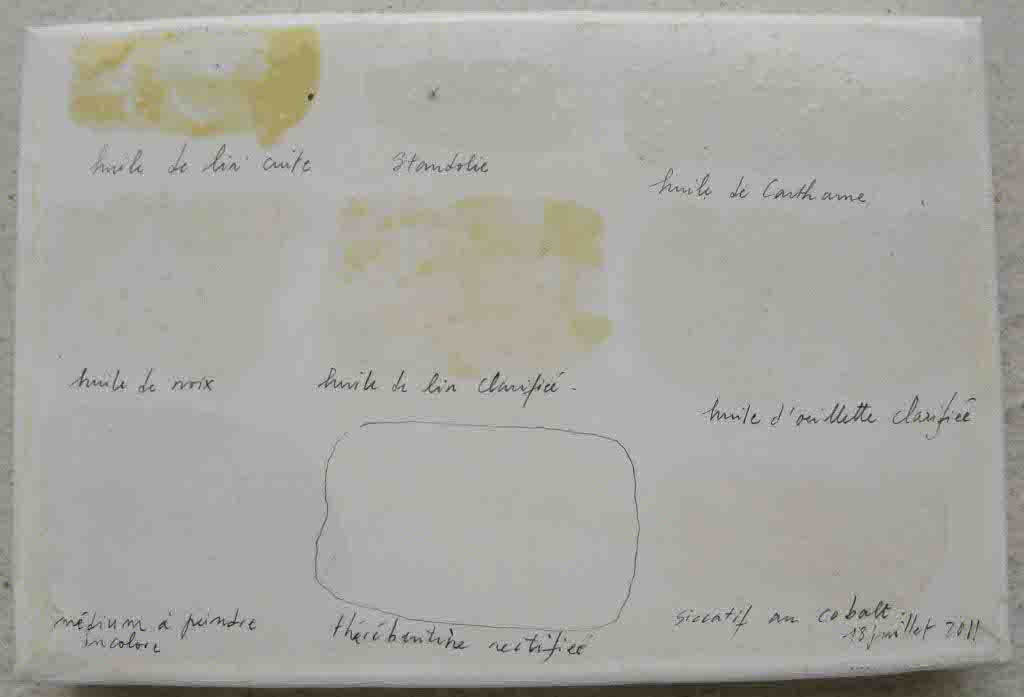 huile de lin cuite
Standolie
huile de Carthame
huile de noix
huile de lin clarifiée -
huile d'oeillette clarifiée
médium à peindre
incolore
thérébentine rectifiée
siccatif au cobalt
18 juillet 2011